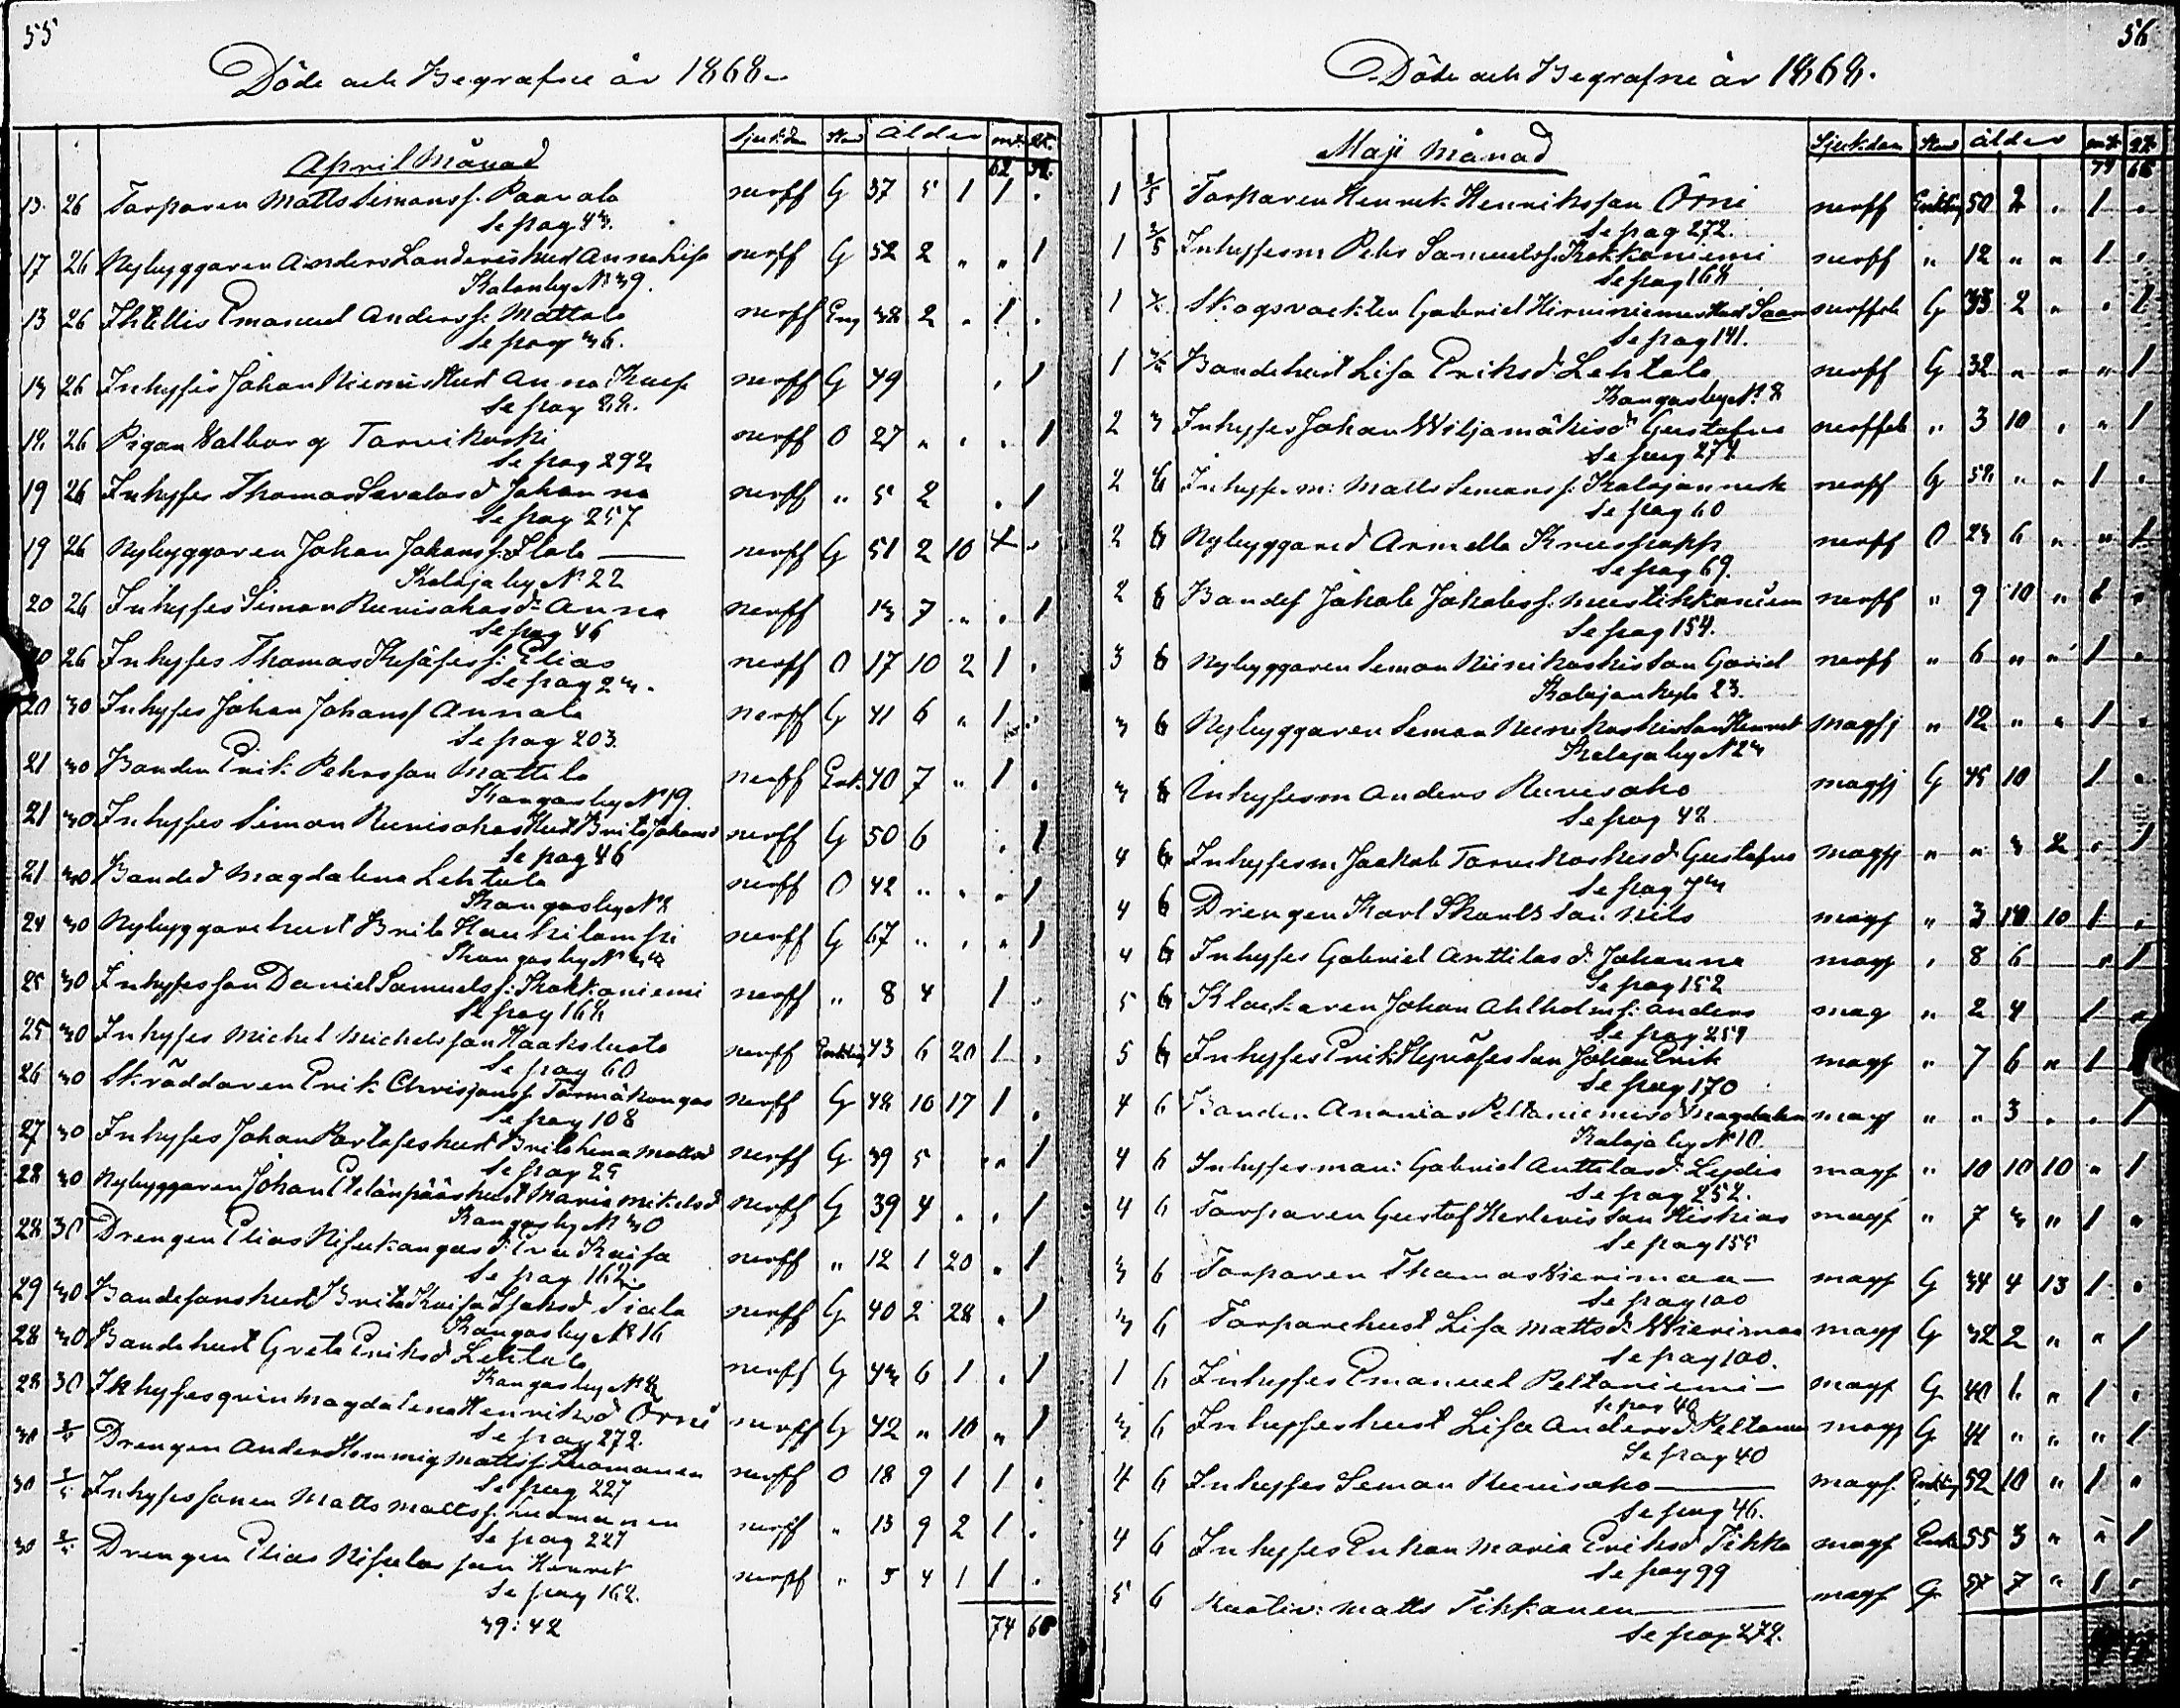 55
Döde och Begrafne år 1868.
Sjukdom Stånd ålder mk. qk.
April Månad 62 52.
13. 26 Torparen Matts Simonsf. Paavola nerff G 37 5 1 1 "
Se pag 43.
17 26 Nybyggaren Anders Landers hust Anna Lisa nerff G 52 2 " " 1
Kalaby N 39.
13 26 Anders f. Mattala nerff 38 2 " 1 "
Se pag 36.
13 26 Inhyses Johan Niemis hust Anna Kaisa nerff G 49 " 1
Se pag 22.
18 26 Pigan Walborg Tarvikoski nerff O 27 " " " 1
Se pag 292
19 26 Inhyses Thomas Savelas d Johanna nerff " 5 2 " 1
Se pag 257
19 26 Nybyggaren Johan Johansf. Ilola nerff G 51 2 10 1 "
Kalaja by N 22
20 26 Inhyses Simon Ruuisahos d. Anna nerff 13 7 " " 1
Se pag 46
20 26 Inhyses Thomas f. Elias nerff O 17 10 2 1 "
Se pag 23.
20 30 Inhyses Johan Johansf Annala nerff G 41 6 " 1 "
Se pag 203.
21 30 Bonden Erik Pehrsson Mattila nerff Enk. 40 7 " 1 "
Kangasby N 19.
21 30 Inhyses Simon Ruuisahos Hust Brita Johansd nerff G 50 6 " 1
Se pag 46
21 30 Bonded Magdalena Lehtola nerff O 42 " " " 1
Kangasby N 8
24 30 Nybyggarehust Brita Hauhilampi nerff G 67 " " " 1
Kangasby N
25 30 Inhyses son Daniel Samuelsf: Kokkoniemi nerff " 8 4 1 "
Se pag 168
25 30 Inhyses Michel Michelsson Haaksluoto nerff Enkling 43 6 20 1 "
Se pag 60
26 30 Skräddaren Erik Chrisjansf Törmäkangas nerff G 48 10 17 1 "
Se pag 108
27 30 Inhyses Johan hust Brita Lena Mattsd nerff G 39 5 " 1
Se pag 25
28 30 Nybyggaren Johan Etelänpääs hust Maria Mikelsd nerff G 39 4 " " 1
Kangasby N 30
28 30 Drengen Elias Nisukangas d: Eva Kaisa nerff " 12 1 20 " 1
Se pag 162.
29 30 Bondesons hust Brita Kaisa Isaksd Tiala nerff G 40 2 28 " 1
Kangasby N 16
28 30 Bondehust Greta Eriksd Lehtola nerff G 43 6 1 " 1
Kangasby N 8
28 30 Inhysesqvin Magdalena Henriksd Örni nerff G 42 " 10 " 1
Se pag 272.
30 2/5 Drengen Anders Hemmig Mattsf. Luomanen nerff O 18 9 1 1 "
Se pag 227
30 2/5 Inhyses sonen Matts Mattsf. Luomanen nerff " 13 9 2 1 "
Se pag 227
30 2/5 Drengen Elias Nisulas son Henret nerff " 5 4 1 1 "
Se pag 162.
39:42 74 68
56
Döde och Begrafne år 1868.
Sjukdom Stånd ålder mk qk
Maji Månad 74 68
1 2/5 Torparen Henrik Henriksson Örni nerff Enkling 50 2 " 1 "
Se pag 272.
1 2/5 Inhyses m Pehr Samuelsf. Kokkoniemi nerff " 12 " " 1 "
Se pag 168
1 2/5 Skogsvackten Gabriel Hirviniemes Hust Saara nerffeb G 33 2 " " 1
Se pag 141.
1 2/5 Bondehust Lisa Eriksd. Lehtola nerff G 32 " " " 1
Kangasby N 8
2 3 Inhyses Johan Wiljamäkis d. Gustafva nerffeb " 3 10 " " 1
Se pag 274
2 6 Inhyses m: Matts Simonsf. Kalajannesk nerff G 58 " " 1 "
Se pag 60
2 6 Nybyggared Armella Kruspapp nerff O 23 6 " " 1
Se pag 69.
2 6 Bondes Jakob Jakobsf. Mustikkaniem nerff " 9 10 " 1 "
Se pag 154.
3 6 Nybyggaren Simon Niinikoskis Son Gabriel nerff " 6 " " 1 "
Kalajanby 23.
3 6 Nybyggaren Simon Niinikoskis Son Henret magsj " 12 " " 1 "
Kalaja by N 23
3 6 Inhyses m Anders Ruuisaho magsj G 45 10 1 "
Se pag 42.
4 6 Inhyses m Jaakob Tarvikoskis d Gustafva magsj " " 3 2 " 1
Se pag 73
4 6 Drengen Karl Skants Son Nils mags " 3 10 10 1 "
4 6 Inhyses Gabriel Anttilas d. Johanna mags " 8 6 " 1
Se pag 152
5 6 Klockaren Johan Ahlholms f: Anders mag " 2 4 1 "
Se pag 259
5 6 Inhyses Erik son Johan Erik mags " 7 6 " 1
Se pag 170
4 6 Bonden Ananias Peltoniemis d Magdalena mags " " 3 " " 1
Kalaja by N 10.
4 6 Inhyses man: Gabriel Anttilas d: Lydia mags " 10 10 10 " 1
Se pag 252.
4 6 Torparen Gustaf Herlevis Son Hiskias mags " 7 3 " 1 "
Se pag 155
3 6 Torparen Thomas Wierimaa mags G 34 4 13 1 "
Se pag 100
3 6 Torparehust Lisa Mattsd. Wierimaa mags G 32 2 " " 1
Se pag 100.
1 6 Inhyses Emanuel Peltoniemi mags G 40 1 " 1 "
Se pag 40
3 6 Inhyseshust Lisa Andersd Peltoniemi mags G 41 " " " 1
Se pag 40
4 6 Inhyses Simon Ruuisaho mags Enkling 52 10 " 1 "
Se pag 46.
4 6 Inhyses Enkan Maria Eriksd Tikka mags Enka 55 3 " " 1
Se pag 99
5 6 Matts Tikkanen mags G 57 7 " 1 "
Se pag 272.